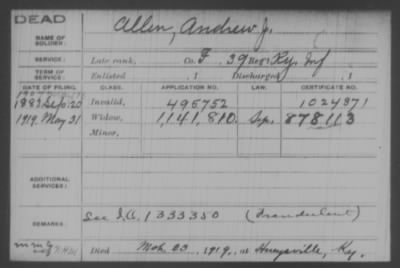 DEAD
NAME OF SOLDIER: Allen, Andrew J.
SERVICE: Late rank, Co. F, 39 Reg't Ky. Inf
TERM OF SERVICE: Enlisted , 1 Discharged , 1
DATE OF FILING. CLASS. APPLICATION NO. LAW. CERTIFICATE NO.
1883 Sep. 20 Invalid, 495752 1024871
1919. May 31 Widow, 1,141,810. Sep. 878113
Minor,
ADDITIONAL SERVICES:
REMARKS: See I.A. 1333350 (Fraudulent)
Died Mch. 23, 1919, at Ky.